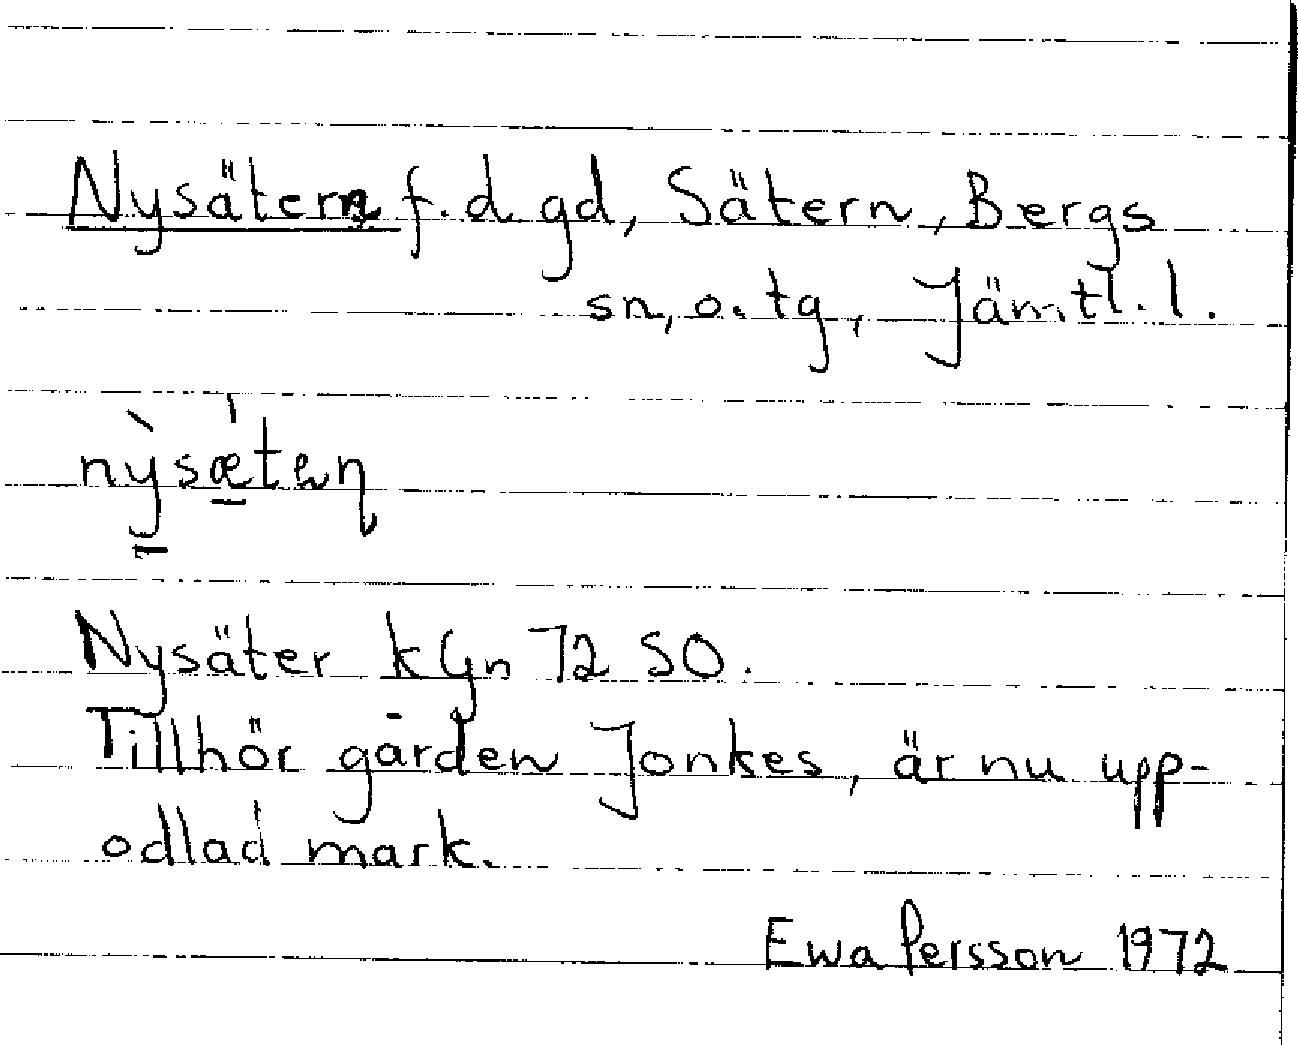 Nysätern f.d gd, Sätern, Bergs
sn, o. tg, Jämtl. l.
nỳsǽten
Nysäter kGn 72 SO.
Tillhör gården Jonkes, är nu upp-
odlad mark.
Ewa Persson 1972